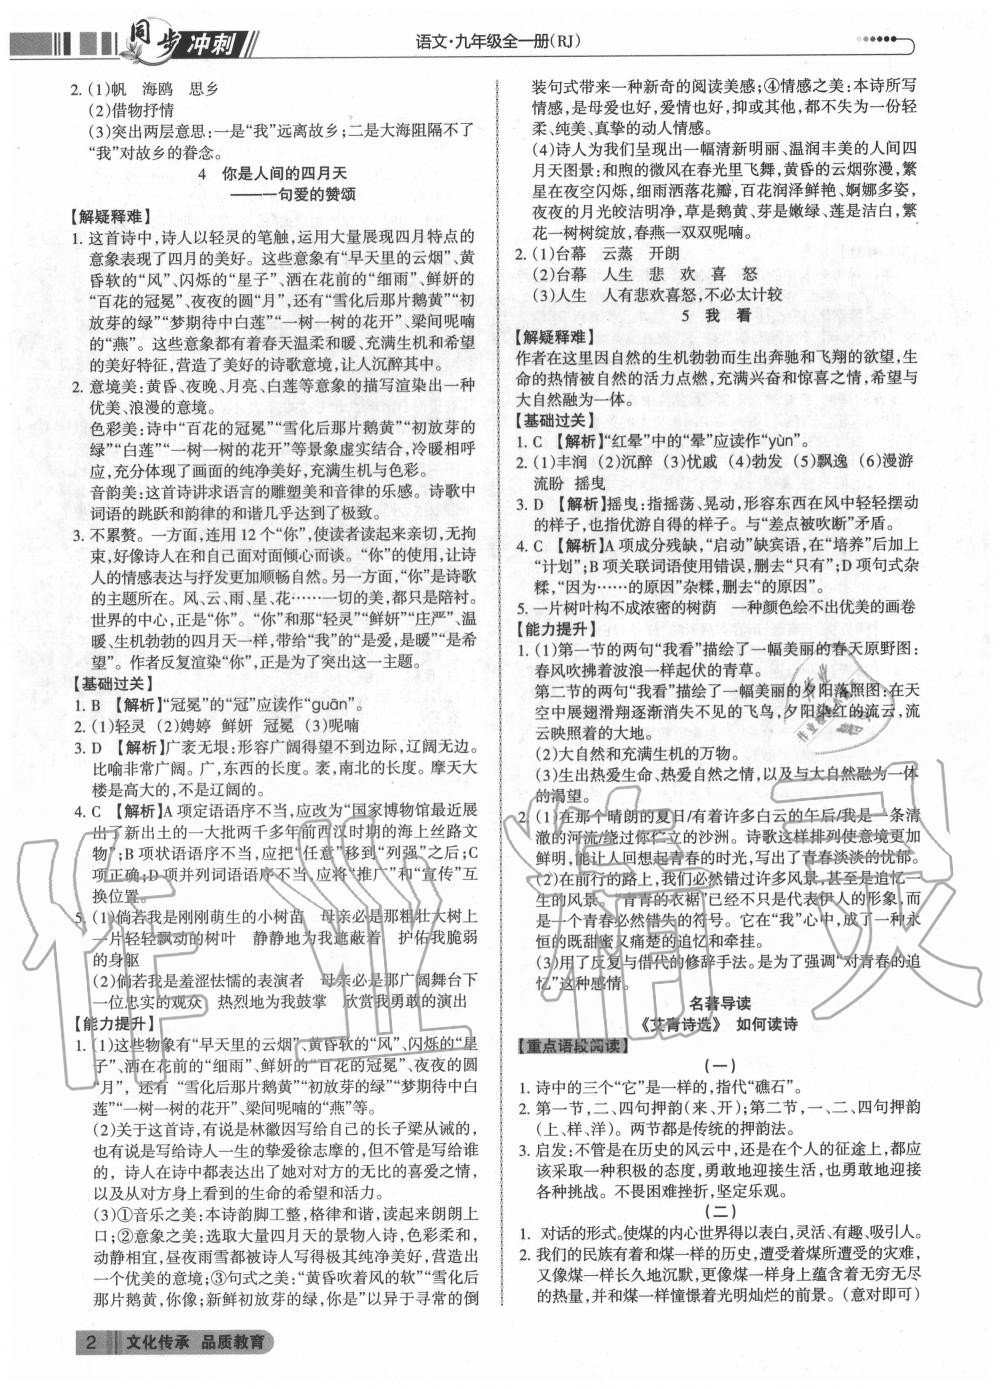 同步冲刺
语文·九年级全一册(RJ)
2. (1)帆　海鸥　思乡
(2)借物抒情
(3)突出两层意思:一是“我”远离故乡;二是大海阻隔不了
“我”对故乡的眷念。
4　你是人间的四月天
——一句爱的赞颂
【解疑释难】
1. 这首诗中,诗人以轻灵的笔触,运用大量展现四月特点的
意象表现了四月的美好。这些意象有“早天里的云烟”、黄
昏软的“风”、闪烁的“星子”、洒在花前的“细雨”、鲜妍的
“百花的冠冕”、夜夜的圆“月”,还有“雪化后那片鹅黄”“初
放芽的绿”“梦期待中白莲”“一树一树的花开”、梁间呢喃
的“燕”。这些意象都有着春天温柔和暖、充满生机和希望
的美好特征,营造了美好的诗歌意境,让人沉醉其中。
2. 意境美:黄昏、夜晚、月亮、白莲等意象的描写渲染出一种
优美、浪漫的意境。
色彩美:诗中“百花的冠冕”“雪化后那片鹅黄”“初放芽的
绿”“白莲”“一树一树的花开”等景象虚实结合,冷暖相呼
应,精妙传达了画面的纯净美好,充满生机与色彩。
音韵美:这首诗讲求语言的雕塑美和音律的乐感。诗歌中
词语的跳跃和韵律的和谐几乎达到了极致。
3. 不累赘。一方面,连用 12 个“你”,使读者读起来亲切,无拘
束,好像诗人在和自己面对面倾心而谈。“你”的使用,让诗
人的情感表达与抒发更加顺畅自然。另一方面,“你”是诗歌
的主题所在。风、云、雨、星、花……一切的美,都只是陪衬。
世界的中心,正是“你”。“你”和那“轻灵”“鲜妍”“庄严”、温
暖、生机勃勃的四月天一样,带给“我”的“是爱,是暖”“是希
望”。作者反复渲染“你”,正是为了突出这一主题。
【基础过关】
1. B　【解析】“冠冕”的“冠”应读作“guān”。
2. (1)轻灵　(2)娉婷　鲜妍　冠冕　(3)呢喃
3. D　【解析】广袤无垠:形容广阔得望不到边际,辽阔无边。
比喻非常广阔。广,东西的长度。袤,南北的长度。摩天大
楼是高大的,不是辽阔的。
4. C　【解析】A 项定语语序不当,应改为“国家博物馆最近展
出了新出土的一大批两千多年前西汉时期的海上丝路文
物”;B 项状语语序不当,应把“任意”移到“列强”之后;C
项正确;D 项并列词语语序不当,应将“推广”和“宣传”互
换位置。
5. (1)倘若我是刚刚萌生的小树苗　母亲必是那粗壮大树上
一片轻轻飘动的树叶　静静地为我遮蔽着　护佑我脆弱
的身躯
(2)倘若我是羞涩怯懦的表演者　母亲必是那广阔舞台下
一位忠实的观众　热烈地为我鼓掌　欣赏我勇敢的演出
【能力提升】
1. (1)这些物象有“早天里的云烟”、黄昏软的“风”、闪烁的
“星子”、洒在花前的“细雨”、鲜妍的“百花的冠冕”、夜夜的圆
“月”,还有“雪化后那片鹅黄”“初放芽的绿”“梦期待中白
莲”“一树一树的花开”、梁间呢喃的“燕”等。
(2)关于这首诗,有说是林徽因写给自己的长子梁从诫的,
也有说是写给诗人一生的挚爱徐志摩的,但不管是写给谁
的,诗人在诗中都表达出了她对对方的无比的喜爱之情,
以及从对方身上看到的生命的希望和活力。
(3)①音乐之美:本诗韵脚工整,格律和谐,读起来朗朗上
口;②意象之美:选取大量四月天的景物入诗,色彩柔和,
动静相宜,昼夜雨雪都被诗人写得极其纯净美好,营造出
一个优美的意境;③句式之美:“黄昏吹着风的软”“雪化后
那片鹅黄,你像;新鲜初放芽的绿,你是”以异于寻常的倒
装句式带来一种新奇的阅读美感;④情感之美:本诗所写
情感,是母爱也好,爱情也好,抑或其他,都不失为一份轻
柔、纯美、真挚的动人情感。
(4)诗人为我们呈现出一幅清新明丽、温润丰美的人间四
月天图景:和煦的微风在春光里飞舞,黄昏的云烟弥漫,繁
星在夜空闪烁,细雨洒落花瓣,百花润泽鲜艳、婀娜多姿,
夜夜的月光皎洁明净,草是鹅黄、芽是嫩绿、莲是洁白,繁
花一树树绽放,春燕一双双呢喃。
2. (1)台幕　云蒸　开朗
(2)台幕　人生　悲　欢　喜　怒
(3)人生　人有悲欢喜怒,不必太计较
5　我　看
【解疑释难】
作者在这里因自然的生机勃勃而生出奔驰和飞翔的欲望,生
命的热情被自然的活力点燃,充满兴奋和惊喜之情,希望与
大自然融为一体。
【基础过关】
1. C　【解析】“红晕”中的“晕”应读作“yùn”。
2. (1)丰润　(2)沉醉　(3)忧戚　(4)勃发　(5)飘逸　(6)漫游
流盼　摇曳
3. D　【解析】摇曳:指摇荡、晃动,形容东西在风中轻轻摆动
的样子,也指优游自得的样子。与“差点被吹断”矛盾。
4. C　【解析】A 项成分残缺,“启动”缺宾语,在“培养”后加上
“计划”;B 项关联词语使用错误,删去“只有”;D 项句式杂
糅,“因为……的原因”杂糅,删去“的原因”。
5. 一片树叶构不成浓密的树荫　一种颜色绘不出优美的画卷
【能力提升】
1. (1)第一节的两句“我看”描绘了一幅美丽的春天原野图:
春风吹拂着波浪一样起伏的青草。
第二节的两句“我看”描绘了一幅美丽的夕阳落照图:在天
空中展翅滑翔逐渐消失不见的飞鸟,夕阳染红的流云,流
云映照着的大地。
(2)大自然和充满生机的万物。
(3)生出热爱生命、热爱自然之情,以及与大自然融为一体
的渴望。
2. (1)在那个晴朗的夏日/有着许多白云的午后/我是一条清
澈的河流/绕过你伫立的沙洲。诗歌这样排列使意境更加
鲜明,能让人回想起青春的时光,写出了青春淡淡的忧郁。
(2)在前行的路上,我们必然错过许多风景,甚至会错过一
生的风景。“青青的衣裾”已经不只是代表伊人的形象,而
是一个青春必然错失的符号。它在“我”心中,成了一种永
恒的既甜蜜又痛楚的追忆和牵挂。
(3)用了反复与借代的修辞手法。是为了强调“对青春的追
忆”这种感情。
名著导读
《艾青诗选》　如何读诗
【重点语段阅读】
(一)
1. 诗中的三个“它”是一样的,指代“礁石”。
2. 第一节,二、四句押韵(来、开);第二节,一、二、四句押韵
(上、样、洋)。两节都是传统的押韵法。
3. 启发:不管是在历史的风云中,还是在个人的征途上,都应
该采取一种积极的态度,勇敢地迎接生活,也勇敢地迎接
各种挑战。不畏困难挫折,坚定乐观。
(二)
1. 对话的形式。使煤的内心世界得以表白,灵活、有趣、吸引人。
2. 我们的民族有着和煤一样的历史,遭受着煤所遭受的灾难,
又像煤一样长久地沉默,更像煤一样身上蕴含着无穷无尽
的热量,并和煤一样憧憬着光明灿烂的前景。(意对即可)
2　文化传承　品质教育
作业精灵